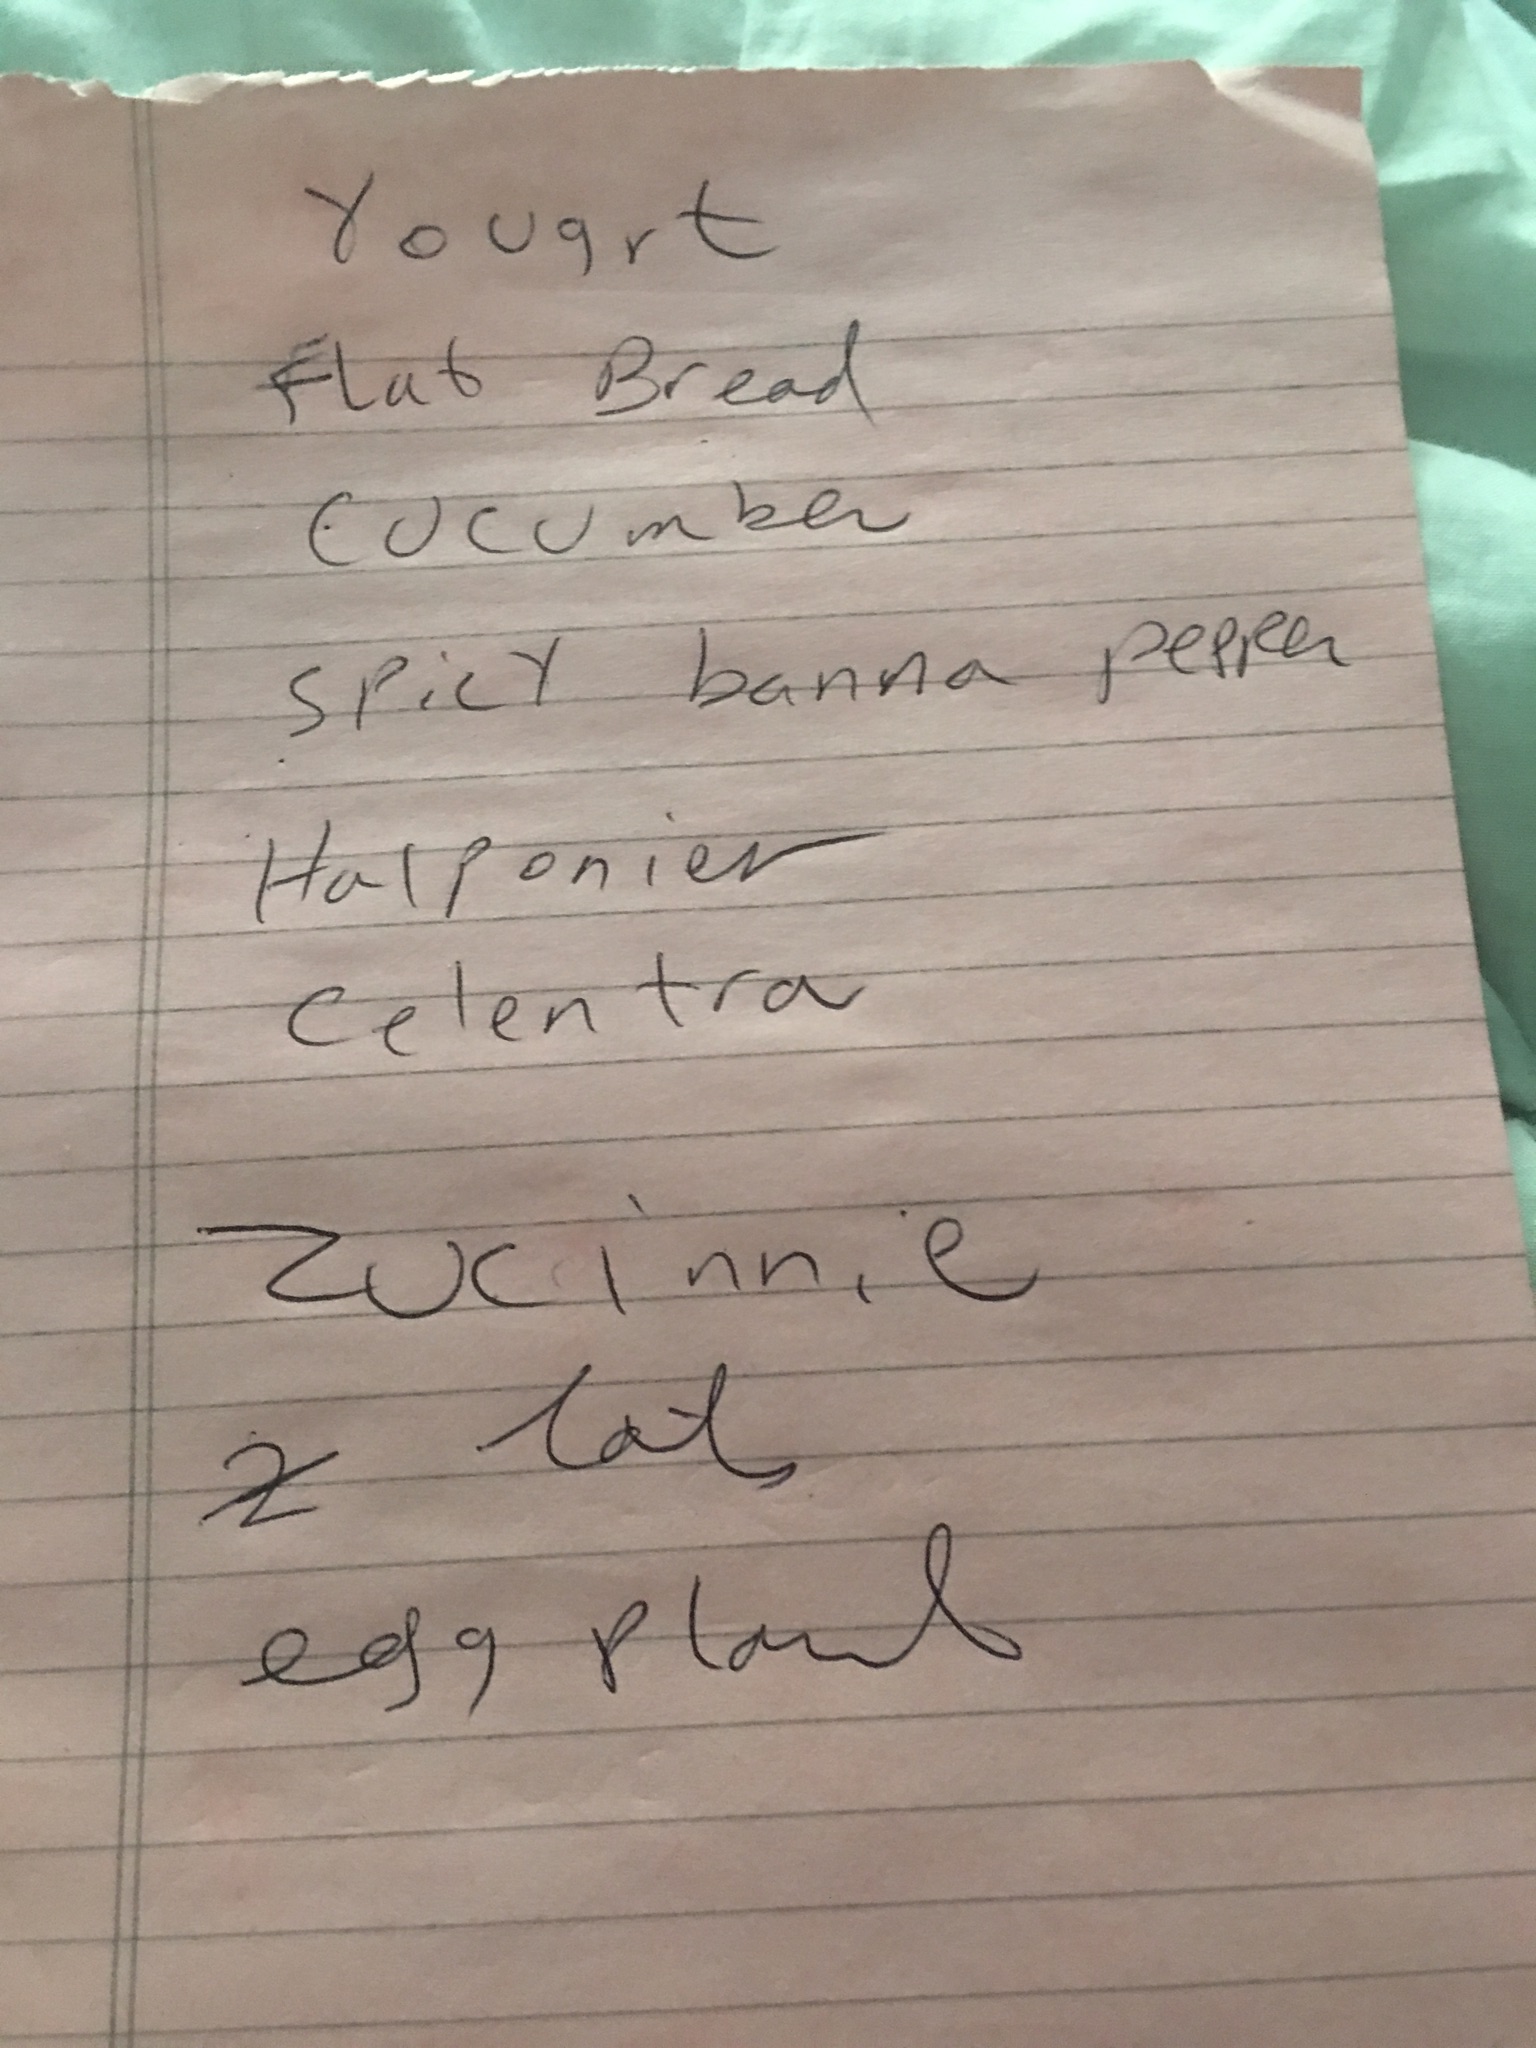 Yougrt
Flat Bread
Cucumber
Spicy banna pepper
Halponier
Celentra
Zucinnie
2 lat
egg plant